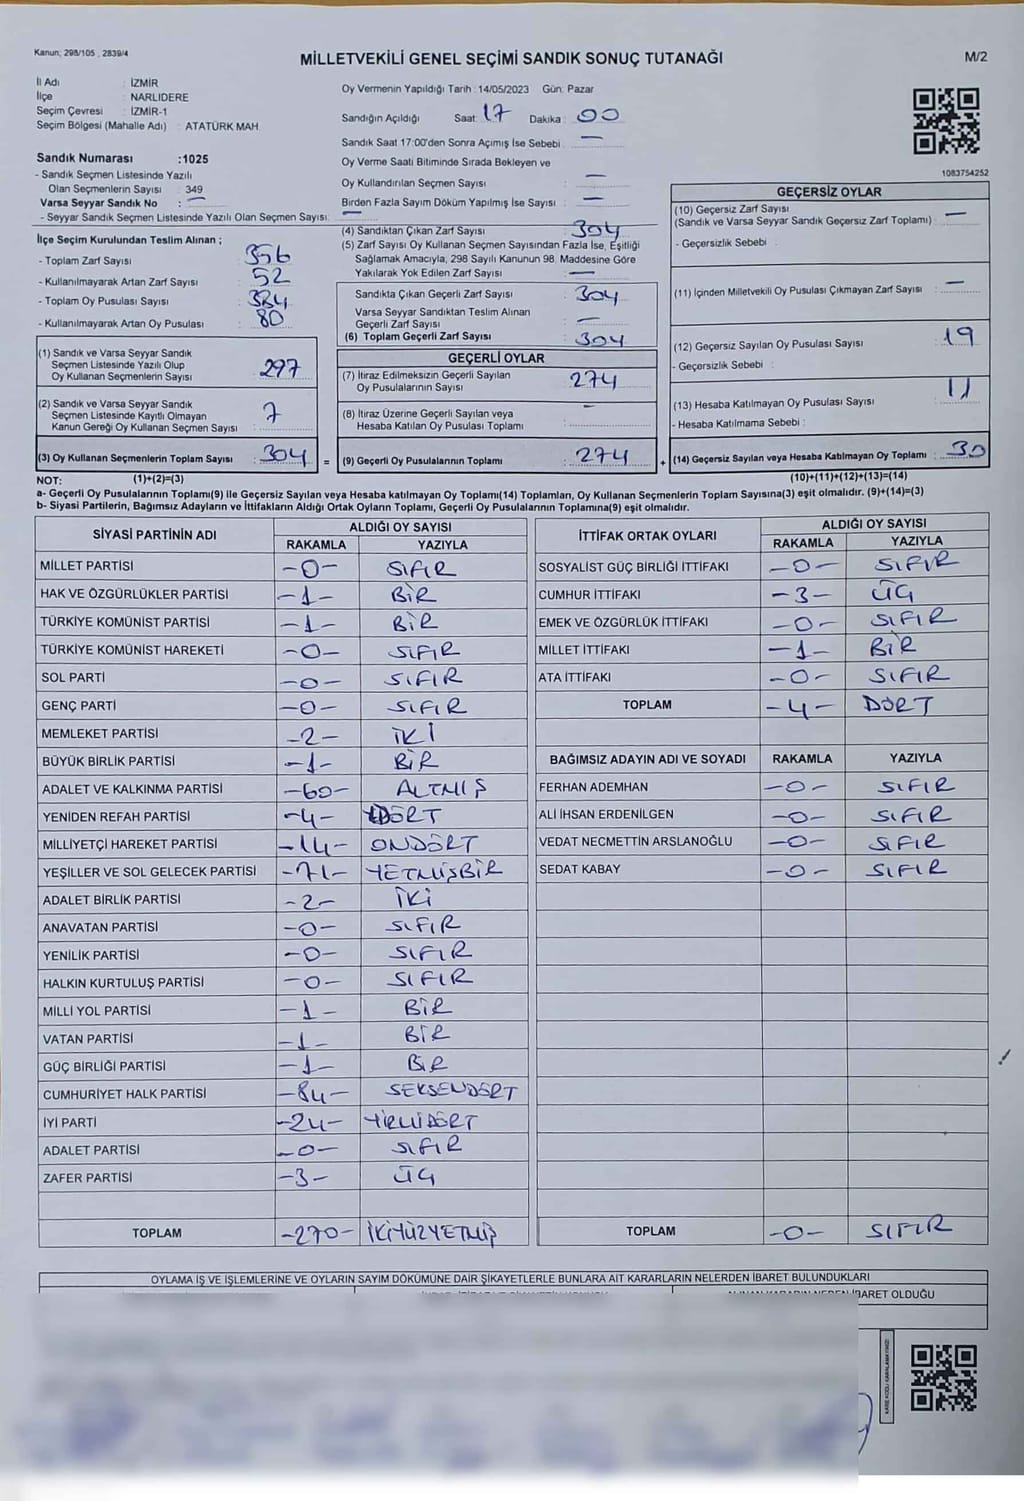 Kanun; 298/105 , 2839/4
MİLLETVEKİLİ GENEL SEÇİMİ SANDIK SONUÇ TUTANAĞI
M/2
İl Adı : İZMİR
İlçe : NARLIDERE
Seçim Çevresi : İZMİR-1
Seçim Bölgesi (Mahalle Adı) : ATATÜRK MAH.
Oy Vermenin Yapıldığı Tarih :14/05/2023 Gün: Pazar
Sandığın Açıldığı Saat: 17 Dakika : 00
Sandık Saat 17:00'den Sonra Açımış İse Sebebi : —
Oy Verme Saati Bitiminde Sırada Bekleyen ve
Oy Kullandırılan Seçmen Sayısı : —
Birden Fazla Sayım Döküm Yapılmış İse Sayısı : —
Sandık Numarası :1025
- Sandık Seçmen Listesinde Yazılı
Olan Seçmenlerin Sayısı : 349
Varsa Seyyar Sandık No : —
- Seyyar Sandık Seçmen Listesinde Yazılı Olan Seçmen Sayısı: —
İlçe Seçim Kurulundan Teslim Alınan ;
- Toplam Zarf Sayısı : 356
- Kullanılmayarak Artan Zarf Sayısı : 52
- Toplam Oy Pusulası Sayısı : 384
- Kullanılmayarak Artan Oy Pusulası : 80
(1) Sandık ve Varsa Seyyar Sandık
Seçmen Listesinde Yazılı Olup
Oy Kullanan Seçmenlerin Sayısı : 297
(2) Sandık ve Varsa Seyyar Sandık
Seçmen Listesinde Kayıtlı Olmayan
Kanun Gereği Oy Kullanan Seçmen Sayısı : 7
(3) Oy Kullanan Seçmenlerin Toplam Sayısı : 304
(4) Sandıktan Çıkan Zarf Sayısı : 304
(5) Zarf Sayısı Oy Kullanan Seçmen Sayısından Fazla İse, Eşitliği
Sağlamak Amacıyla, 298 Sayılı Kanunun 98. Maddesine Göre
Yakılarak Yok Edilen Zarf Sayısı : —
Sandıkta Çıkan Geçerli Zarf Sayısı : 304
Varsa Seyyar Sandıktan Teslim Alınan
Geçerli Zarf Sayısı : —
(6) Toplam Geçerli Zarf Sayısı : 304
GEÇERLİ OYLAR
(7) İtiraz Edilmeksizin Geçerli Sayılan
Oy Pusulalarının Sayısı : 274
(8) İtiraz Üzerine Geçerli Sayılan veya
Hesaba Katılan Oy Pusulası Toplamı : —
= (9) Geçerli Oy Pusulalarının Toplamı : 274
1083754252
GEÇERSİZ OYLAR
(10) Geçersiz Zarf Sayısı
(Sandık ve Varsa Seyyar Sandık Geçersiz Zarf Toplamı) : —
- Geçersizlik Sebebi :
(11) İçinden Milletvekili Oy Pusulası Çıkmayan Zarf Sayısı : —
(12) Geçersiz Sayılan Oy Pusulası Sayısı : 19
- Geçersizlik Sebebi :
(13) Hesaba Katılmayan Oy Pusulası Sayısı : 11
- Hesaba Katılmama Sebebi :
+ (14) Geçersiz Sayılan veya Hesaba Katılmayan Oy Toplamı : 30
NOT: (1)+(2)=(3)
(10)+(11)+(12)+(13)=(14)
a- Geçerli Oy Pusulalarının Toplamı(9) ile Geçersiz Sayılan veya Hesaba katılmayan Oy Toplamı(14) Toplamları, Oy Kullanan Seçmenlerin Toplam Sayısına(3) eşit olmalıdır. (9)+(14)=(3)
b- Siyasi Partilerin, Bağımsız Adayların ve İttifakların Aldığı Ortak Oyların Toplamı, Geçerli Oy Pusulalarının Toplamına(9) eşit olmalıdır.
SİYASİ PARTİNİN ADI ALDIĞI OY SAYISI
RAKAMLA YAZIYLA
MİLLET PARTİSİ -0- SIFIR
HAK VE ÖZGÜRLÜKLER PARTİSİ -1- BİR
TÜRKİYE KOMÜNİST PARTİSİ -1- BİR
TÜRKİYE KOMÜNİST HAREKETİ -0- SIFIR
SOL PARTİ -0- SIFIR
GENÇ PARTİ -0- SIFIR
MEMLEKET PARTİSİ -2- İKİ
BÜYÜK BİRLİK PARTİSİ -1- BİR
ADALET VE KALKINMA PARTİSİ -60- ALTMIŞ
YENİDEN REFAH PARTİSİ -4- DÖRT
MİLLİYETÇİ HAREKET PARTİSİ -14- ONDÖRT
YEŞİLLER VE SOL GELECEK PARTİSİ -71- YETMİŞBİR
ADALET BİRLİK PARTİSİ -2- İKİ
ANAVATAN PARTİSİ -0- SIFIR
YENİLİK PARTİSİ -0- SIFIR
HALKIN KURTULUŞ PARTİSİ -0- SIFIR
MİLLİ YOL PARTİSİ -1- BİR
VATAN PARTİSİ -1- BİR
GÜÇ BİRLİĞİ PARTİSİ -1- BİR
CUMHURİYET HALK PARTİSİ -84- SEKSENDÖRT
İYİ PARTİ -24- YİRMİDÖRT
ADALET PARTİSİ -0- SIFIR
ZAFER PARTİSİ -3- ÜÇ
TOPLAM -270- İKİYÜZYETMİŞ
İTTİFAK ORTAK OYLARI ALDIĞI OY SAYISI
RAKAMLA YAZIYLA
SOSYALİST GÜÇ BİRLİĞİ İTTİFAKI -0- SIFIR
CUMHUR İTTİFAKI -3- ÜÇ
EMEK VE ÖZGÜRLÜK İTTİFAKI -0- SIFIR
MİLLET İTTİFAKI -1- BİR
ATA İTTİFAKI -0- SIFIR
TOPLAM -4- DÖRT
BAĞIMSIZ ADAYIN ADI VE SOYADI RAKAMLA YAZIYLA
FERHAN ADEMHAN -0- SIFIR
ALİ İHSAN ERDENİLGEN -0- SIFIR
VEDAT NECMETTİN ARSLANOĞLU -0- SIFIR
SEDAT KABAY -0- SIFIR
TOPLAM -0- SIFIR
OYLAMA İŞ VE İŞLEMLERİNE VE OYLARIN SAYIM DÖKÜMÜNE DAİR ŞİKAYETLERLE BUNLARA AİT KARARLARIN NELERDEN İBARET BULUNDUKLARI
İBARET OLDUĞU